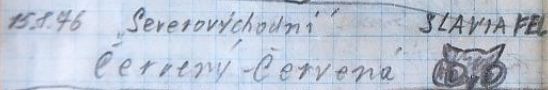 15.8.76 „Severovýchodní“ SLAVIA FEL
Červený - Červená